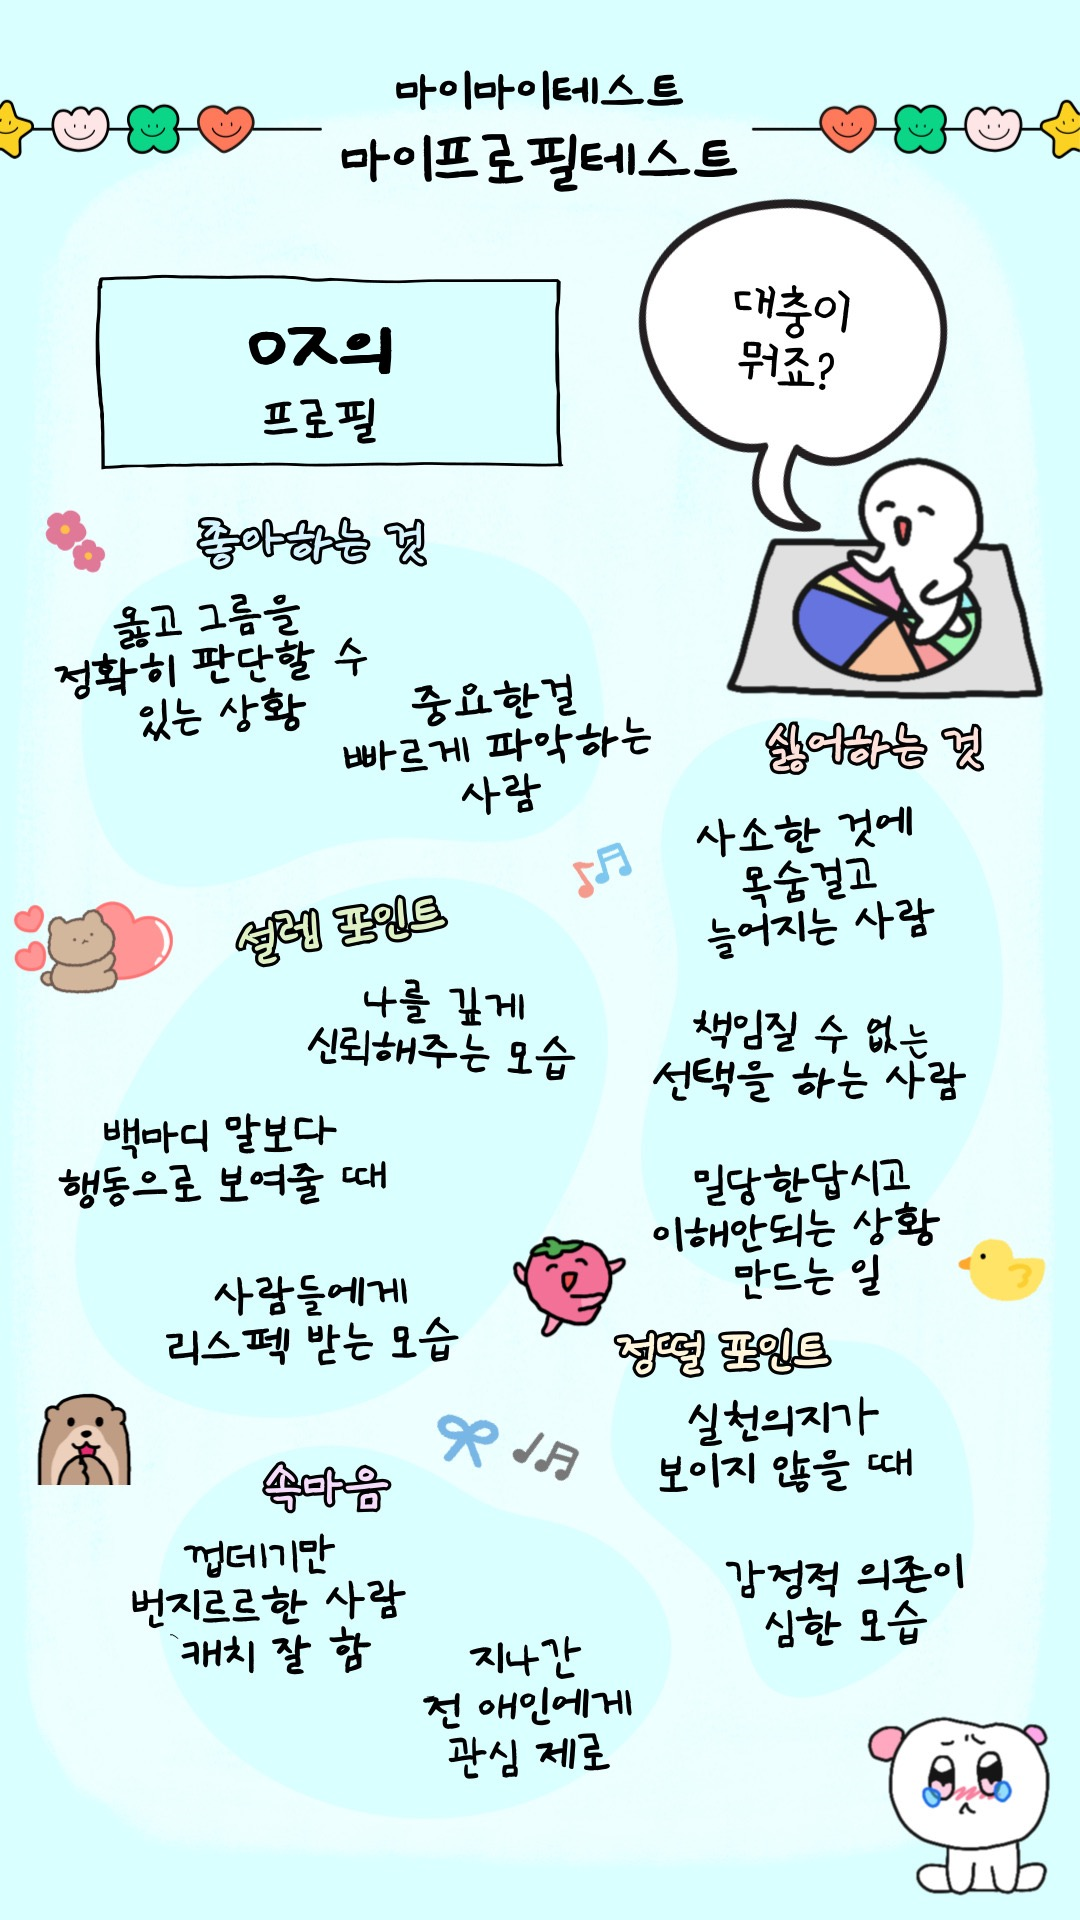 마이마이테스트
마이프로필테스트
대충이
뭐죠?
ㅇㅈ의
프로필
좋아하는 것
옳고 그름을
정확히 판단할 수
있는 상황
중요한걸
빠르게 파악하는
사람
싫어하는 것
사소한 것에
목숨걸고
늘어지는 사람
책임질 수 없는
선택을 하는 사람
밀당한답시고
이해안되는 상황
만드는 일
설렘 포인트
나를 깊게
신뢰해주는 모습
백마디 말보다
행동으로 보여줄 때
사람들에게
리스펙 받는 모습
정떨 포인트
실천의지가
보이지 않을 때
감정적 의존이
심한 모습
속마음
껍데기만
번지르르한 사람
캐치 잘 함
지나간
전 애인에게
관심 제로